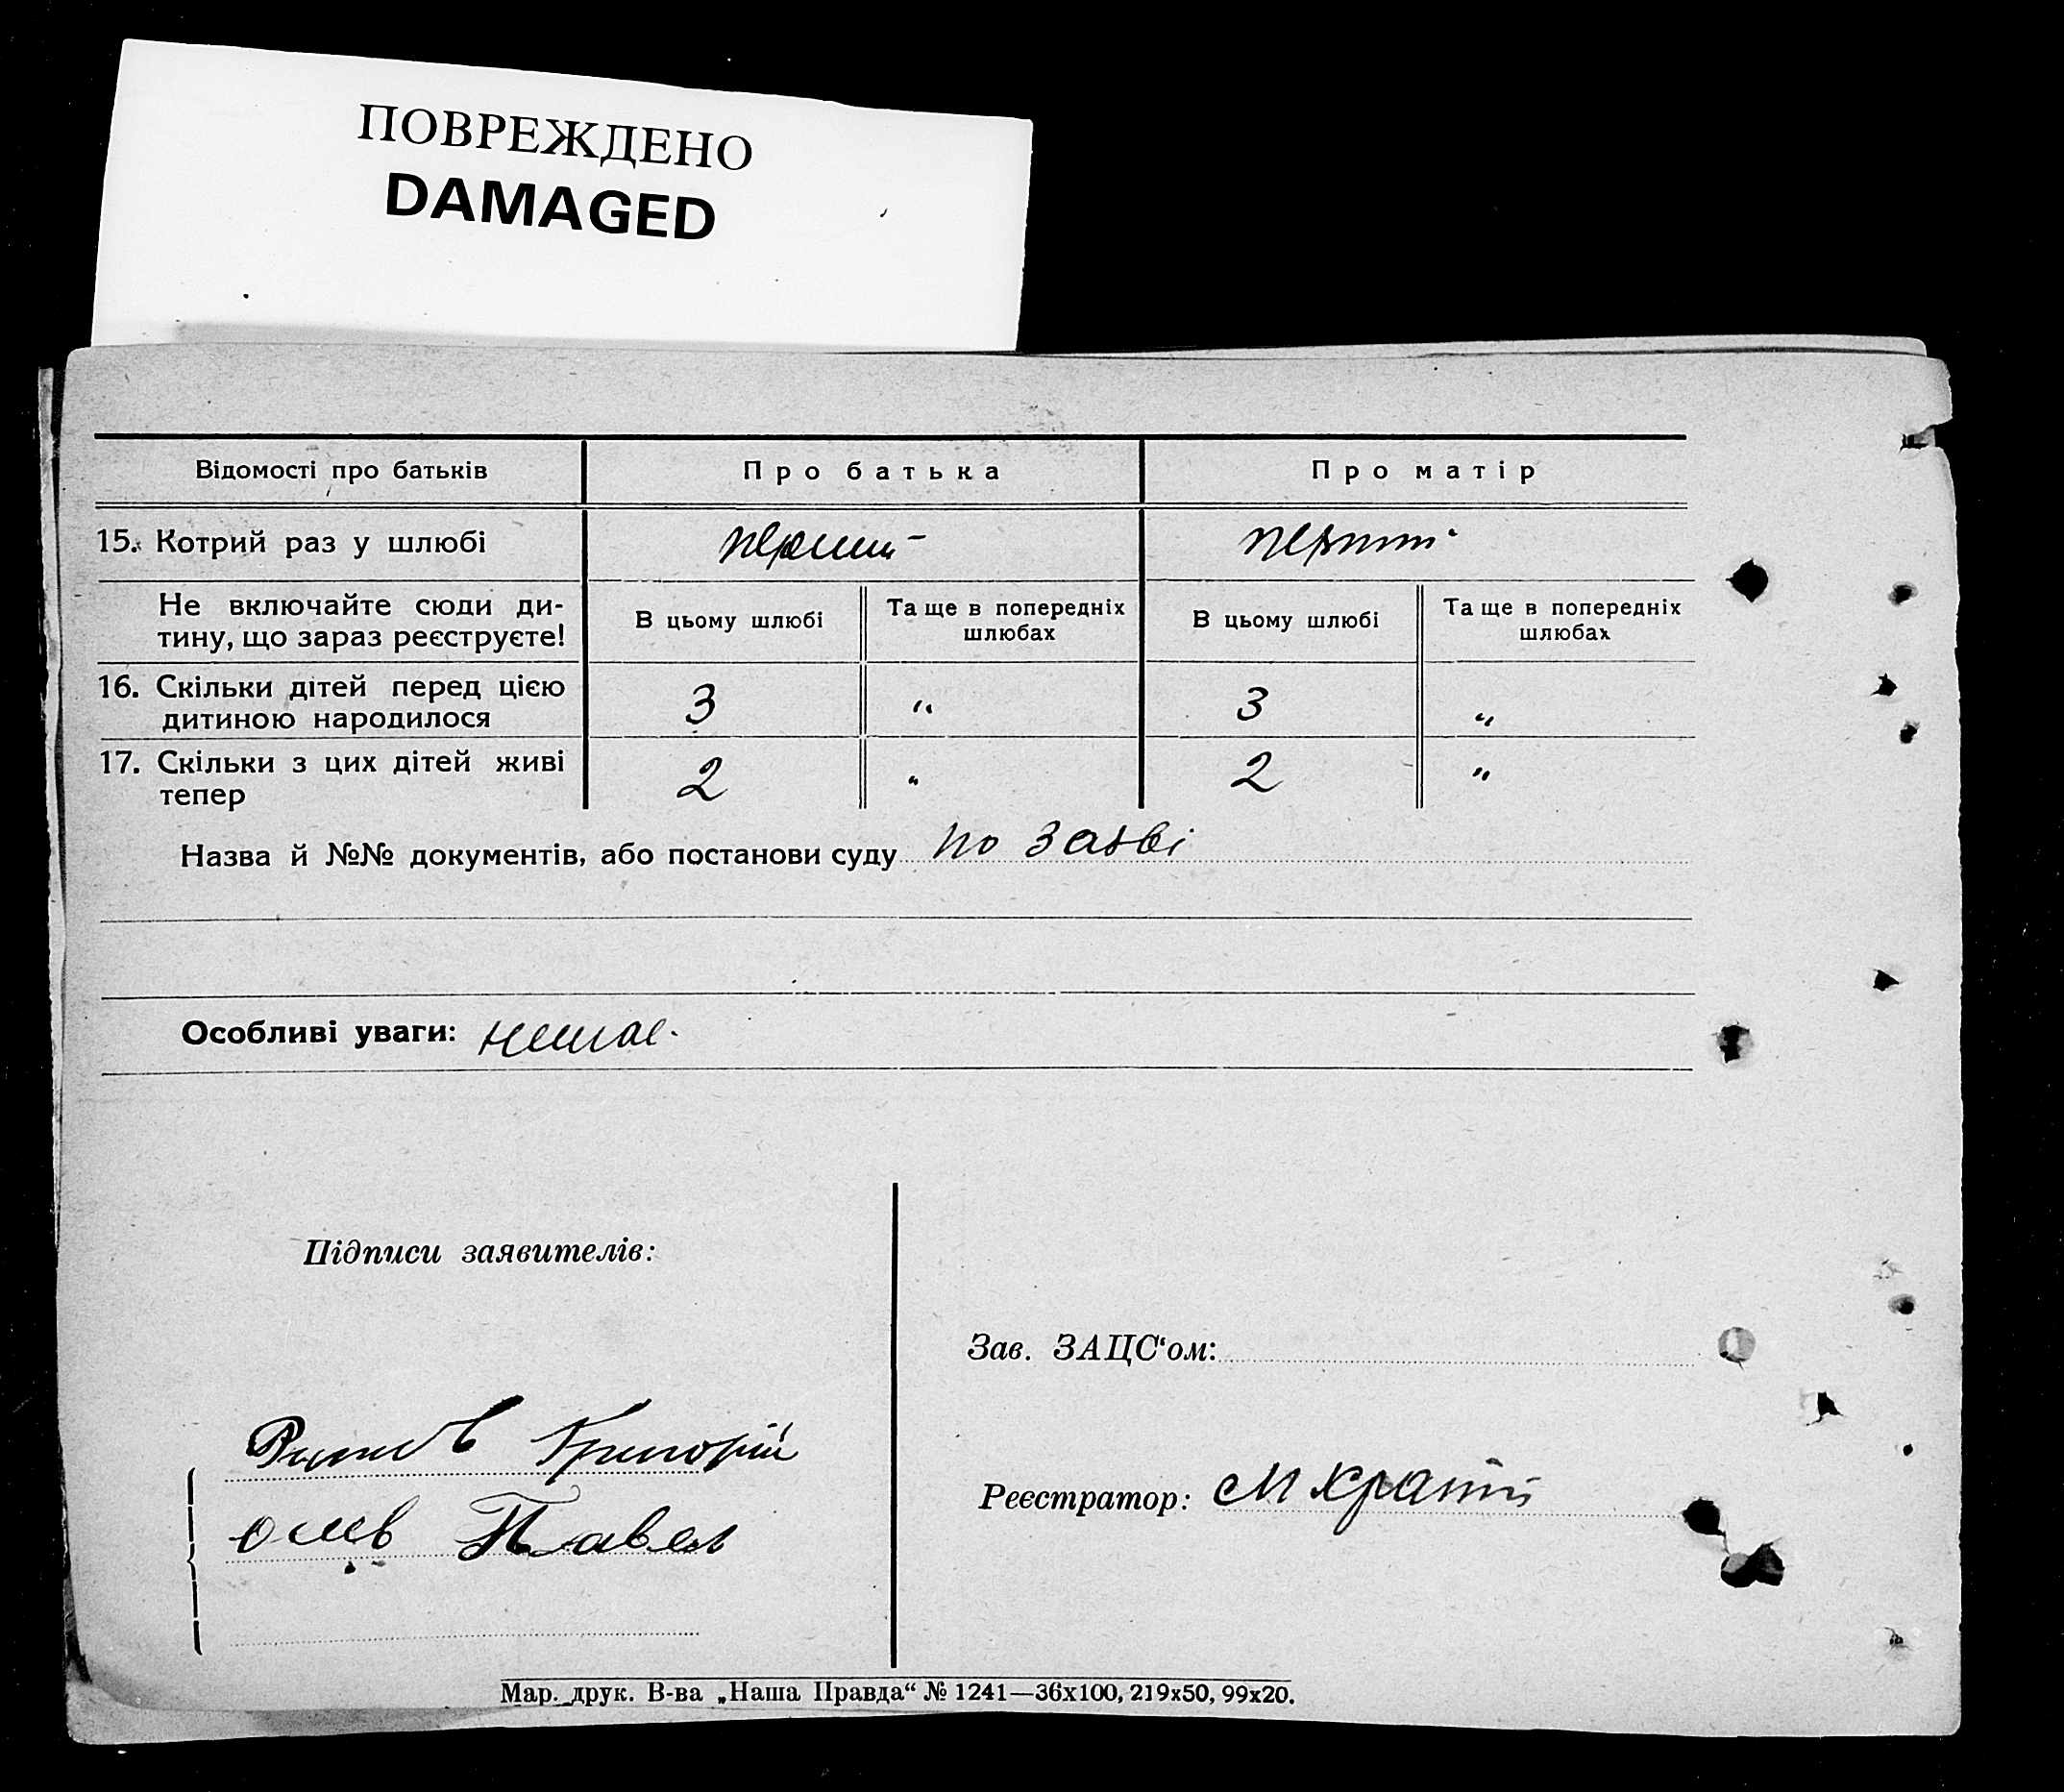 ПОВРЕЖДЕНО
DAMAGED
Відомості про батьків
Про батька
Про матір
15. Котрий раз у шлюбі
перший
перший
Не включайте сюди ди-
тину, що зараз реєструєте!
В цьому шлюбі
Та ще в попередніх
шлюбах
В цьому шлюбі
Та ще в попередніх
шлюбах
16. Скільки дітей перед цією
дитиною народилося
3
"
3
"
17. Скільки з цих дітей живі
тепер
2
"
2
"
Назва й №№ документів, або постанови суду по заяві
Особливі уваги: немає.
Підписи заявителів:
Григорій
Павел
Зав. ЗАЦС‘ом:
Реєстратор: М
Мар. друк. В-ва „Наша Правда“ № 1241—36х100, 219х50, 99х20.